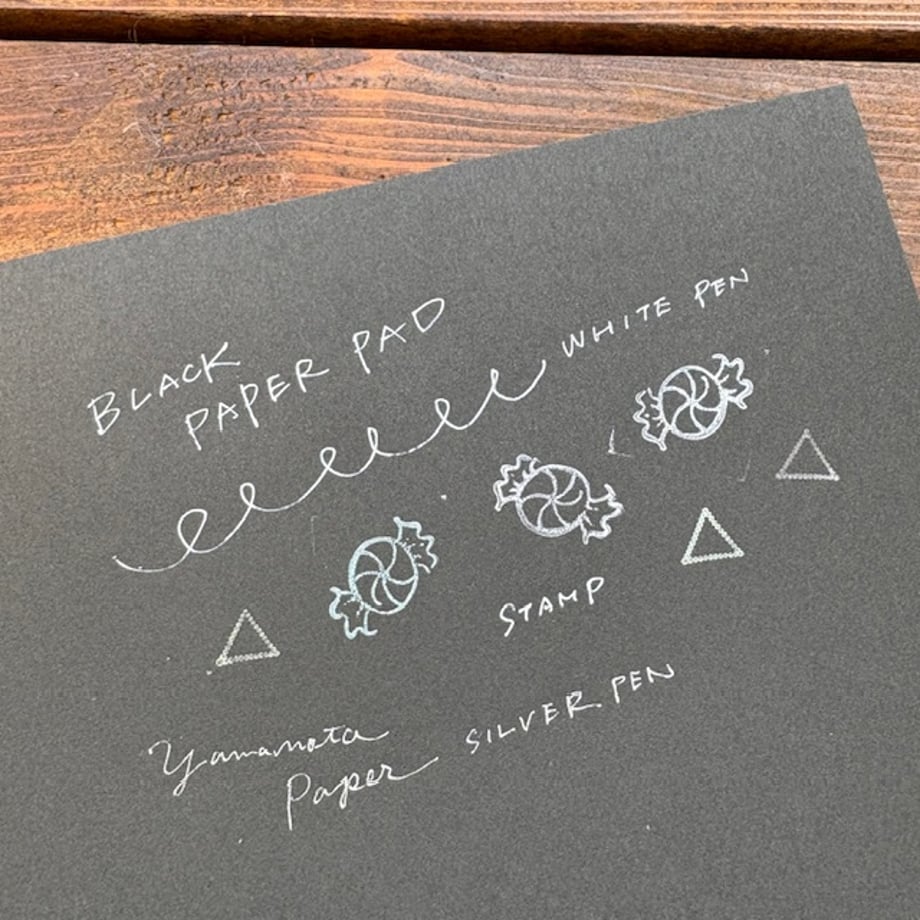 BLACK
PAPER PAD
WHITE PEN
STAMP
Yamamoto
Paper
SILVER PEN